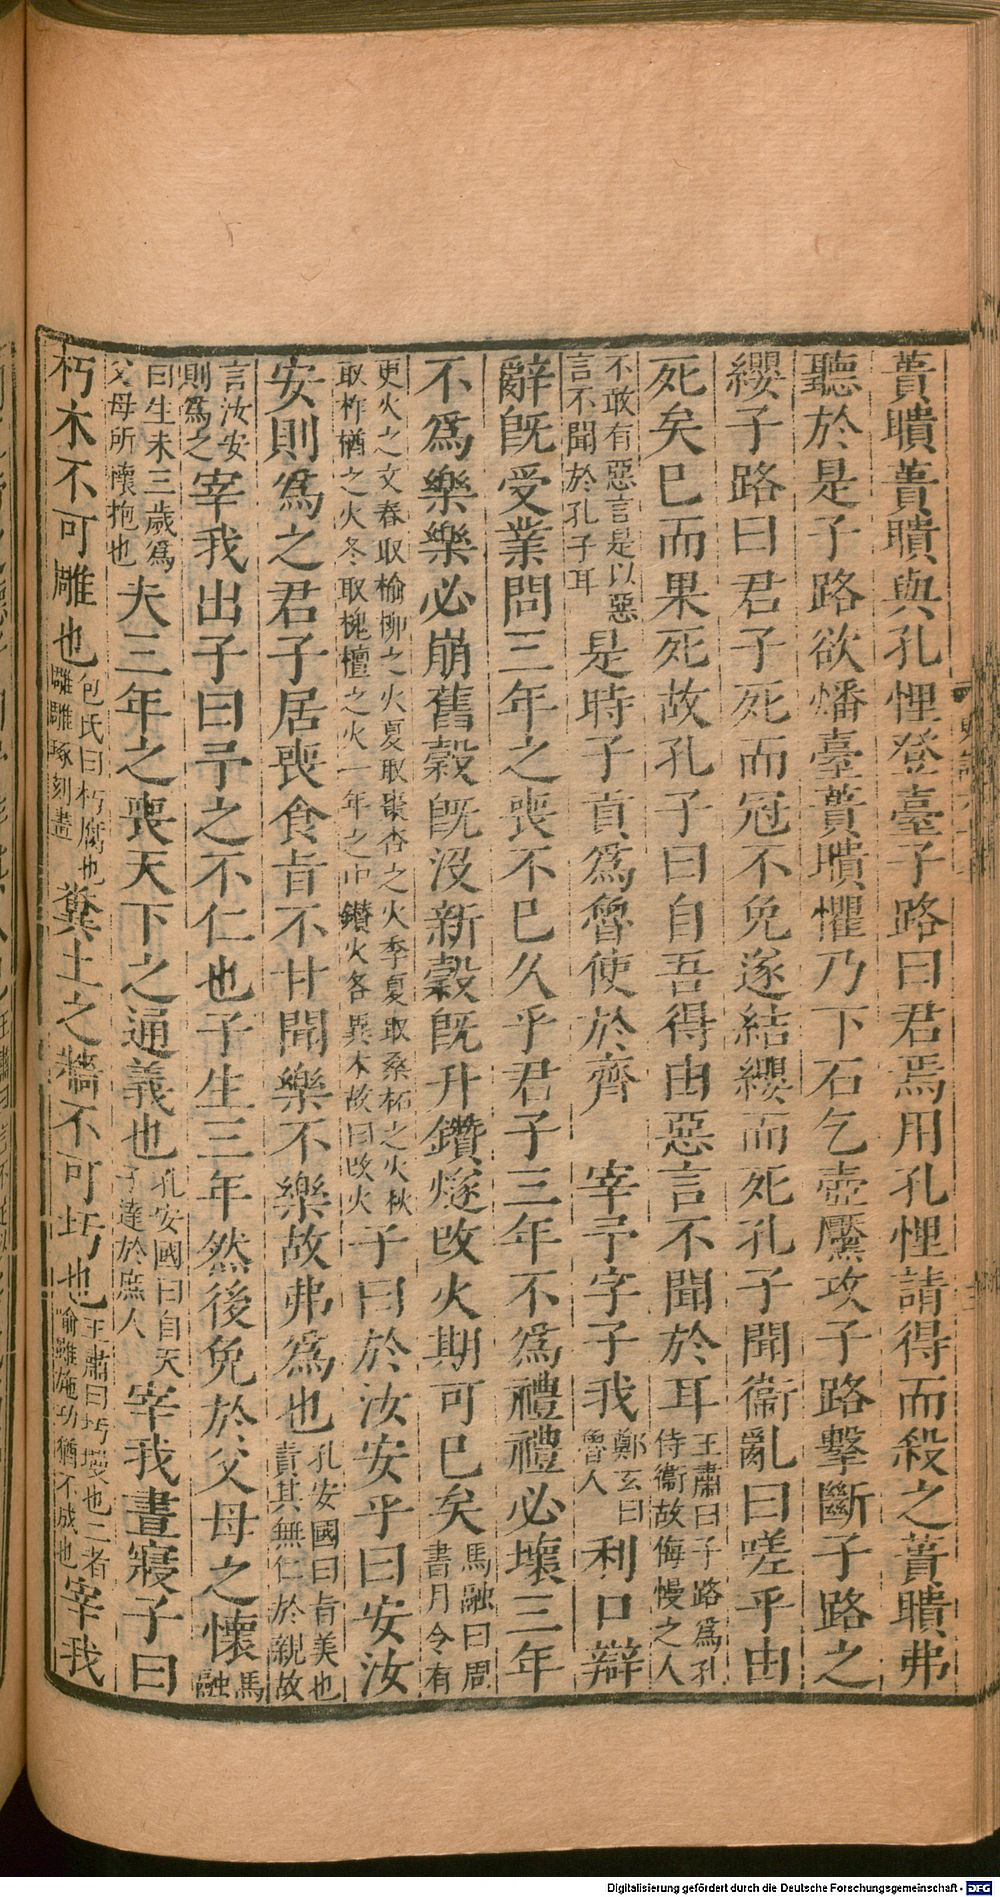 蕢聵蕢聵與孔悝登臺子路曰君焉用孔悝請得而殺之蕢聵弗
聽於是子路欲燔臺蕢聵懼乃下石乞壺黶攻子路擊斷子路之
纓子路曰君子死而冠不免遂結纓而死孔子聞衞亂曰嗟乎由
死矣已而果死故孔子曰自吾得由惡言不聞於耳王肅曰子路爲孔侍衞故侮慢之人
不敢有惡言是以惡言不聞於孔子耳是時子貢爲魯使於齊 宰予字子我鄭玄曰魯人利口辯
辭旣受業問三年之喪不已久乎君子三年不爲禮禮必壞三年
不爲樂樂必崩舊穀旣沒新穀旣升鑽燧改火期可已矣馬融曰周書月令有
更火之文春取楡柳之火夏取棗杏之火季夏取桑柘之火秋取柞楢之火冬取槐檀之火一年之中鑚火各異木故曰改火子曰於汝安乎曰安汝
安則爲之君子居喪食旨不甘聞樂不樂故弗爲也孔安國曰旨美也責其無仁於親故
言汝安則爲之宰我出子曰予之不仁也子生三年然後免於父母之懷馬融
曰生未三歲爲父母所懷抱也夫三年之喪天下之通義也孔安國曰自天子達於庶人宰我晝寢子曰
朽木不可雕也包氏曰朽腐也雕雕琢刻畫糞土之牆不可圬也王肅曰圬墁也二者喻雖施功猶不成也宰我
Digitalisierung gefördert durch die Deutsche Forschungsgemeinschaft - DFG